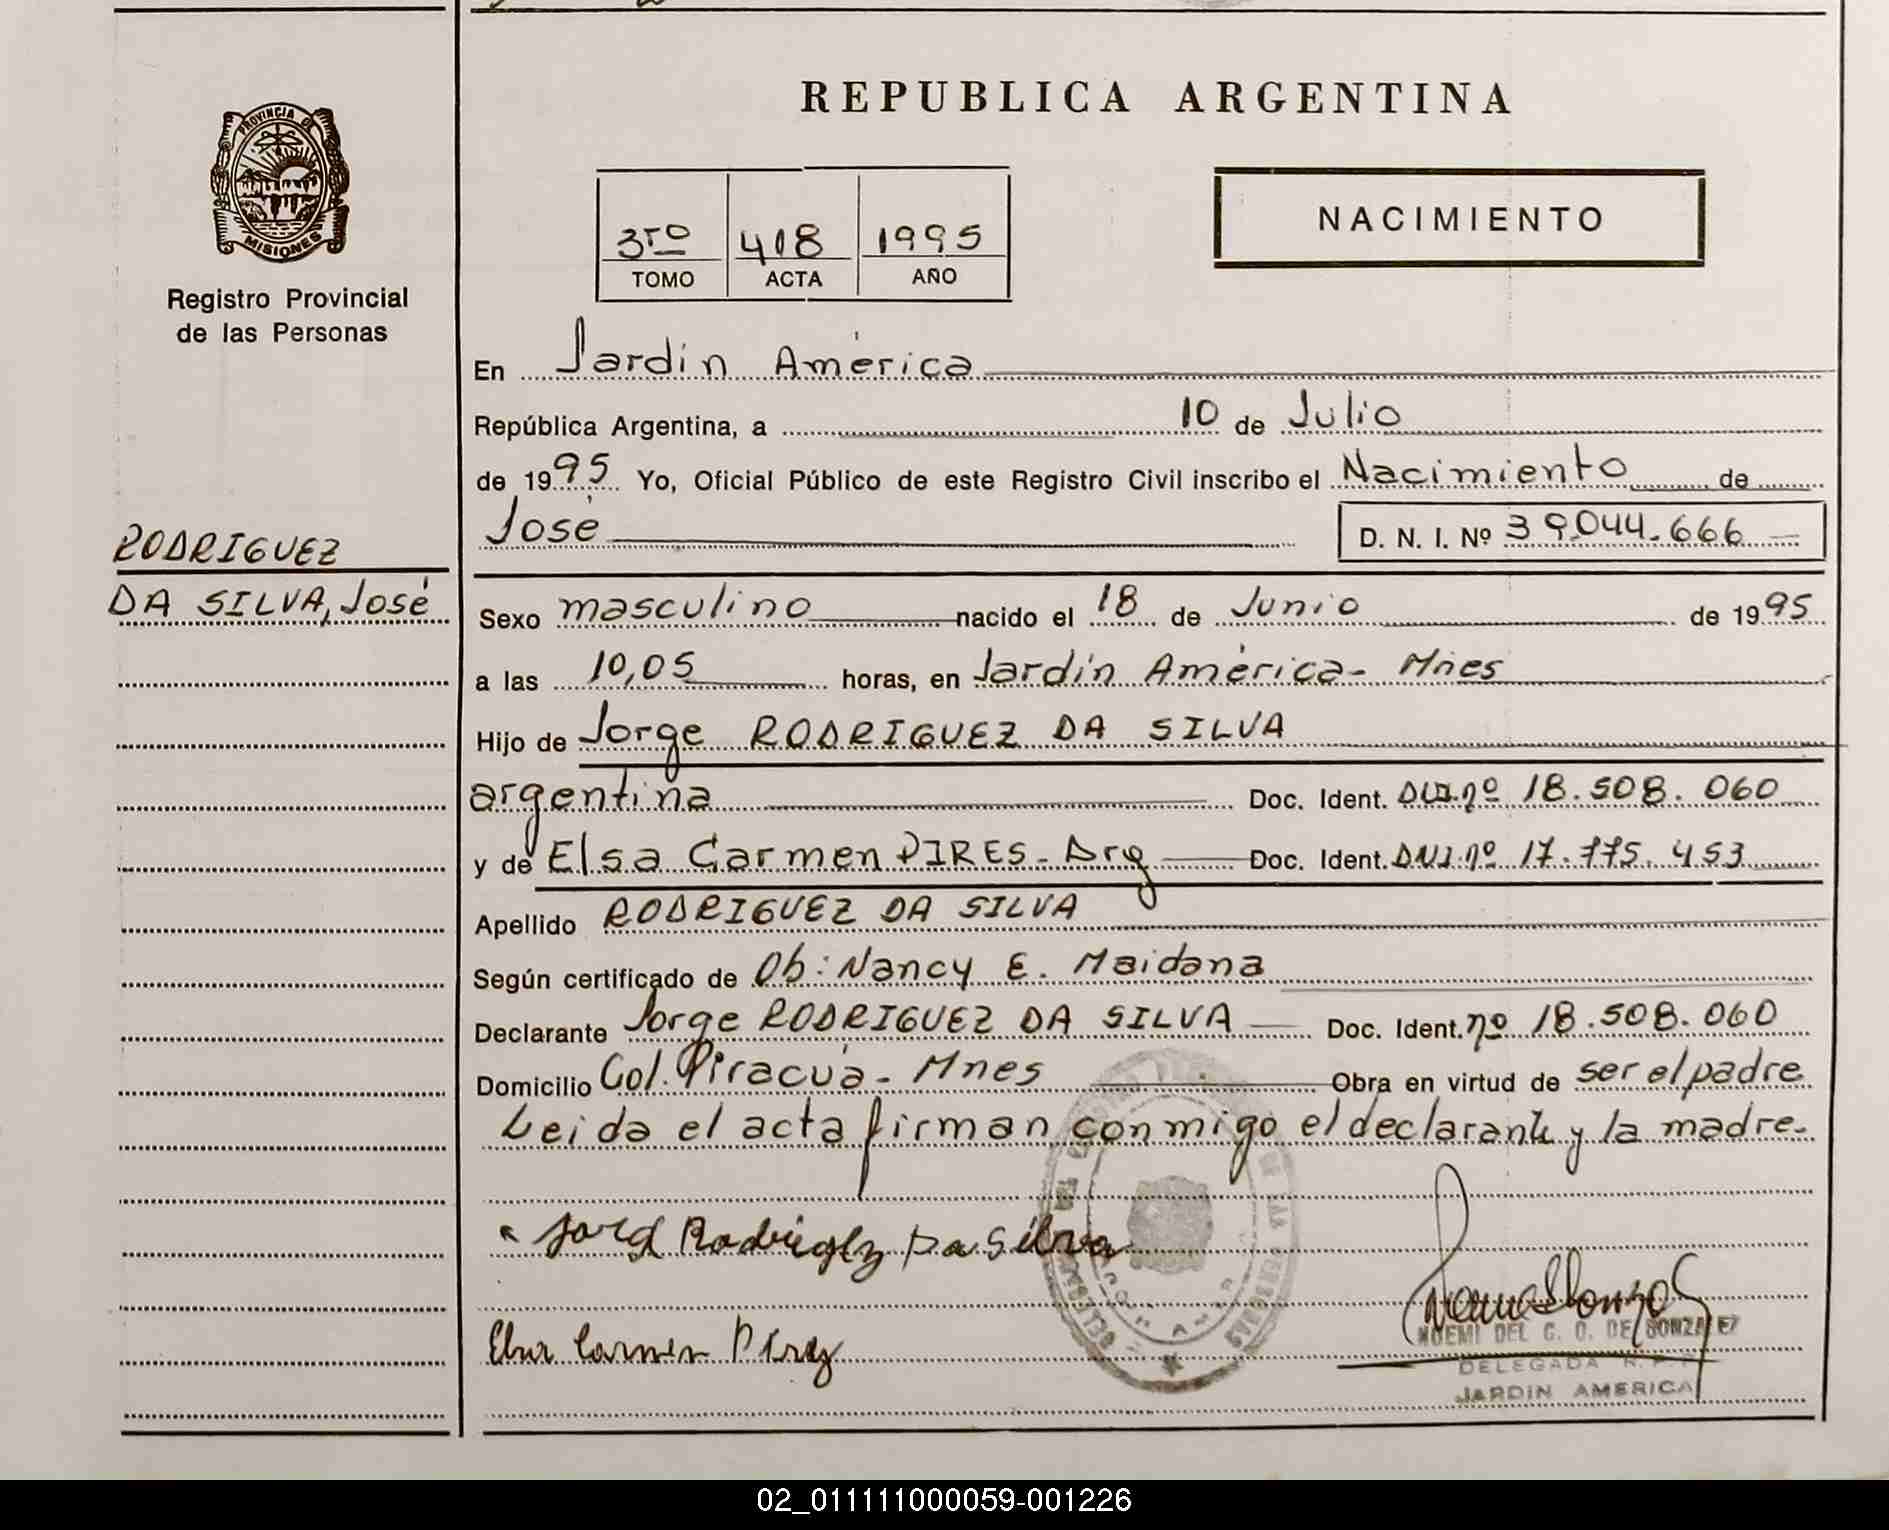 REPUBLICA ARGENTINA
PROVINCIA DE
MISIONES
Registro Provincial
de las Personas
3ro 418 1995
TOMO ACTA AÑO
NACIMIENTO
En Jardín América
República Argentina, a 10 de Julio
de 1995 Yo, Oficial Público de este Registro Civil inscribo el Nacimiento de
José D. N. I. Nº 39.044.666
RODRIGUEZ
DA SILVA, José
Sexo masculino nacido el 18 de Junio de 1995
a las 10,05 horas, en Jardín América- Mnes
Hijo de Jorge RODRIGUEZ DA SILVA
argentina Doc. Ident. DNI.nº 18.508.060
y de Elsa Carmen PIRES- Arg Doc. Ident. DNI.nº 17.775.453
Apellido RODRIGUEZ DA SILVA
Según certificado de Ob: Nancy E. Maidana
Declarante Jorge RODRIGUEZ DA SILVA Doc. Ident. nº 18.508.060
Domicilio Col. Piracuá- Mnes Obra en virtud de ser el padre
Leida el acta firman conmigo el declarante y la madre.
Rodriguez Da Silva
Elsa Carmen
NOEMI DEL C. O. DE GONZALEZ
DELEGADA R. P. P.
JARDIN AMERICA
02_011111000059-001226